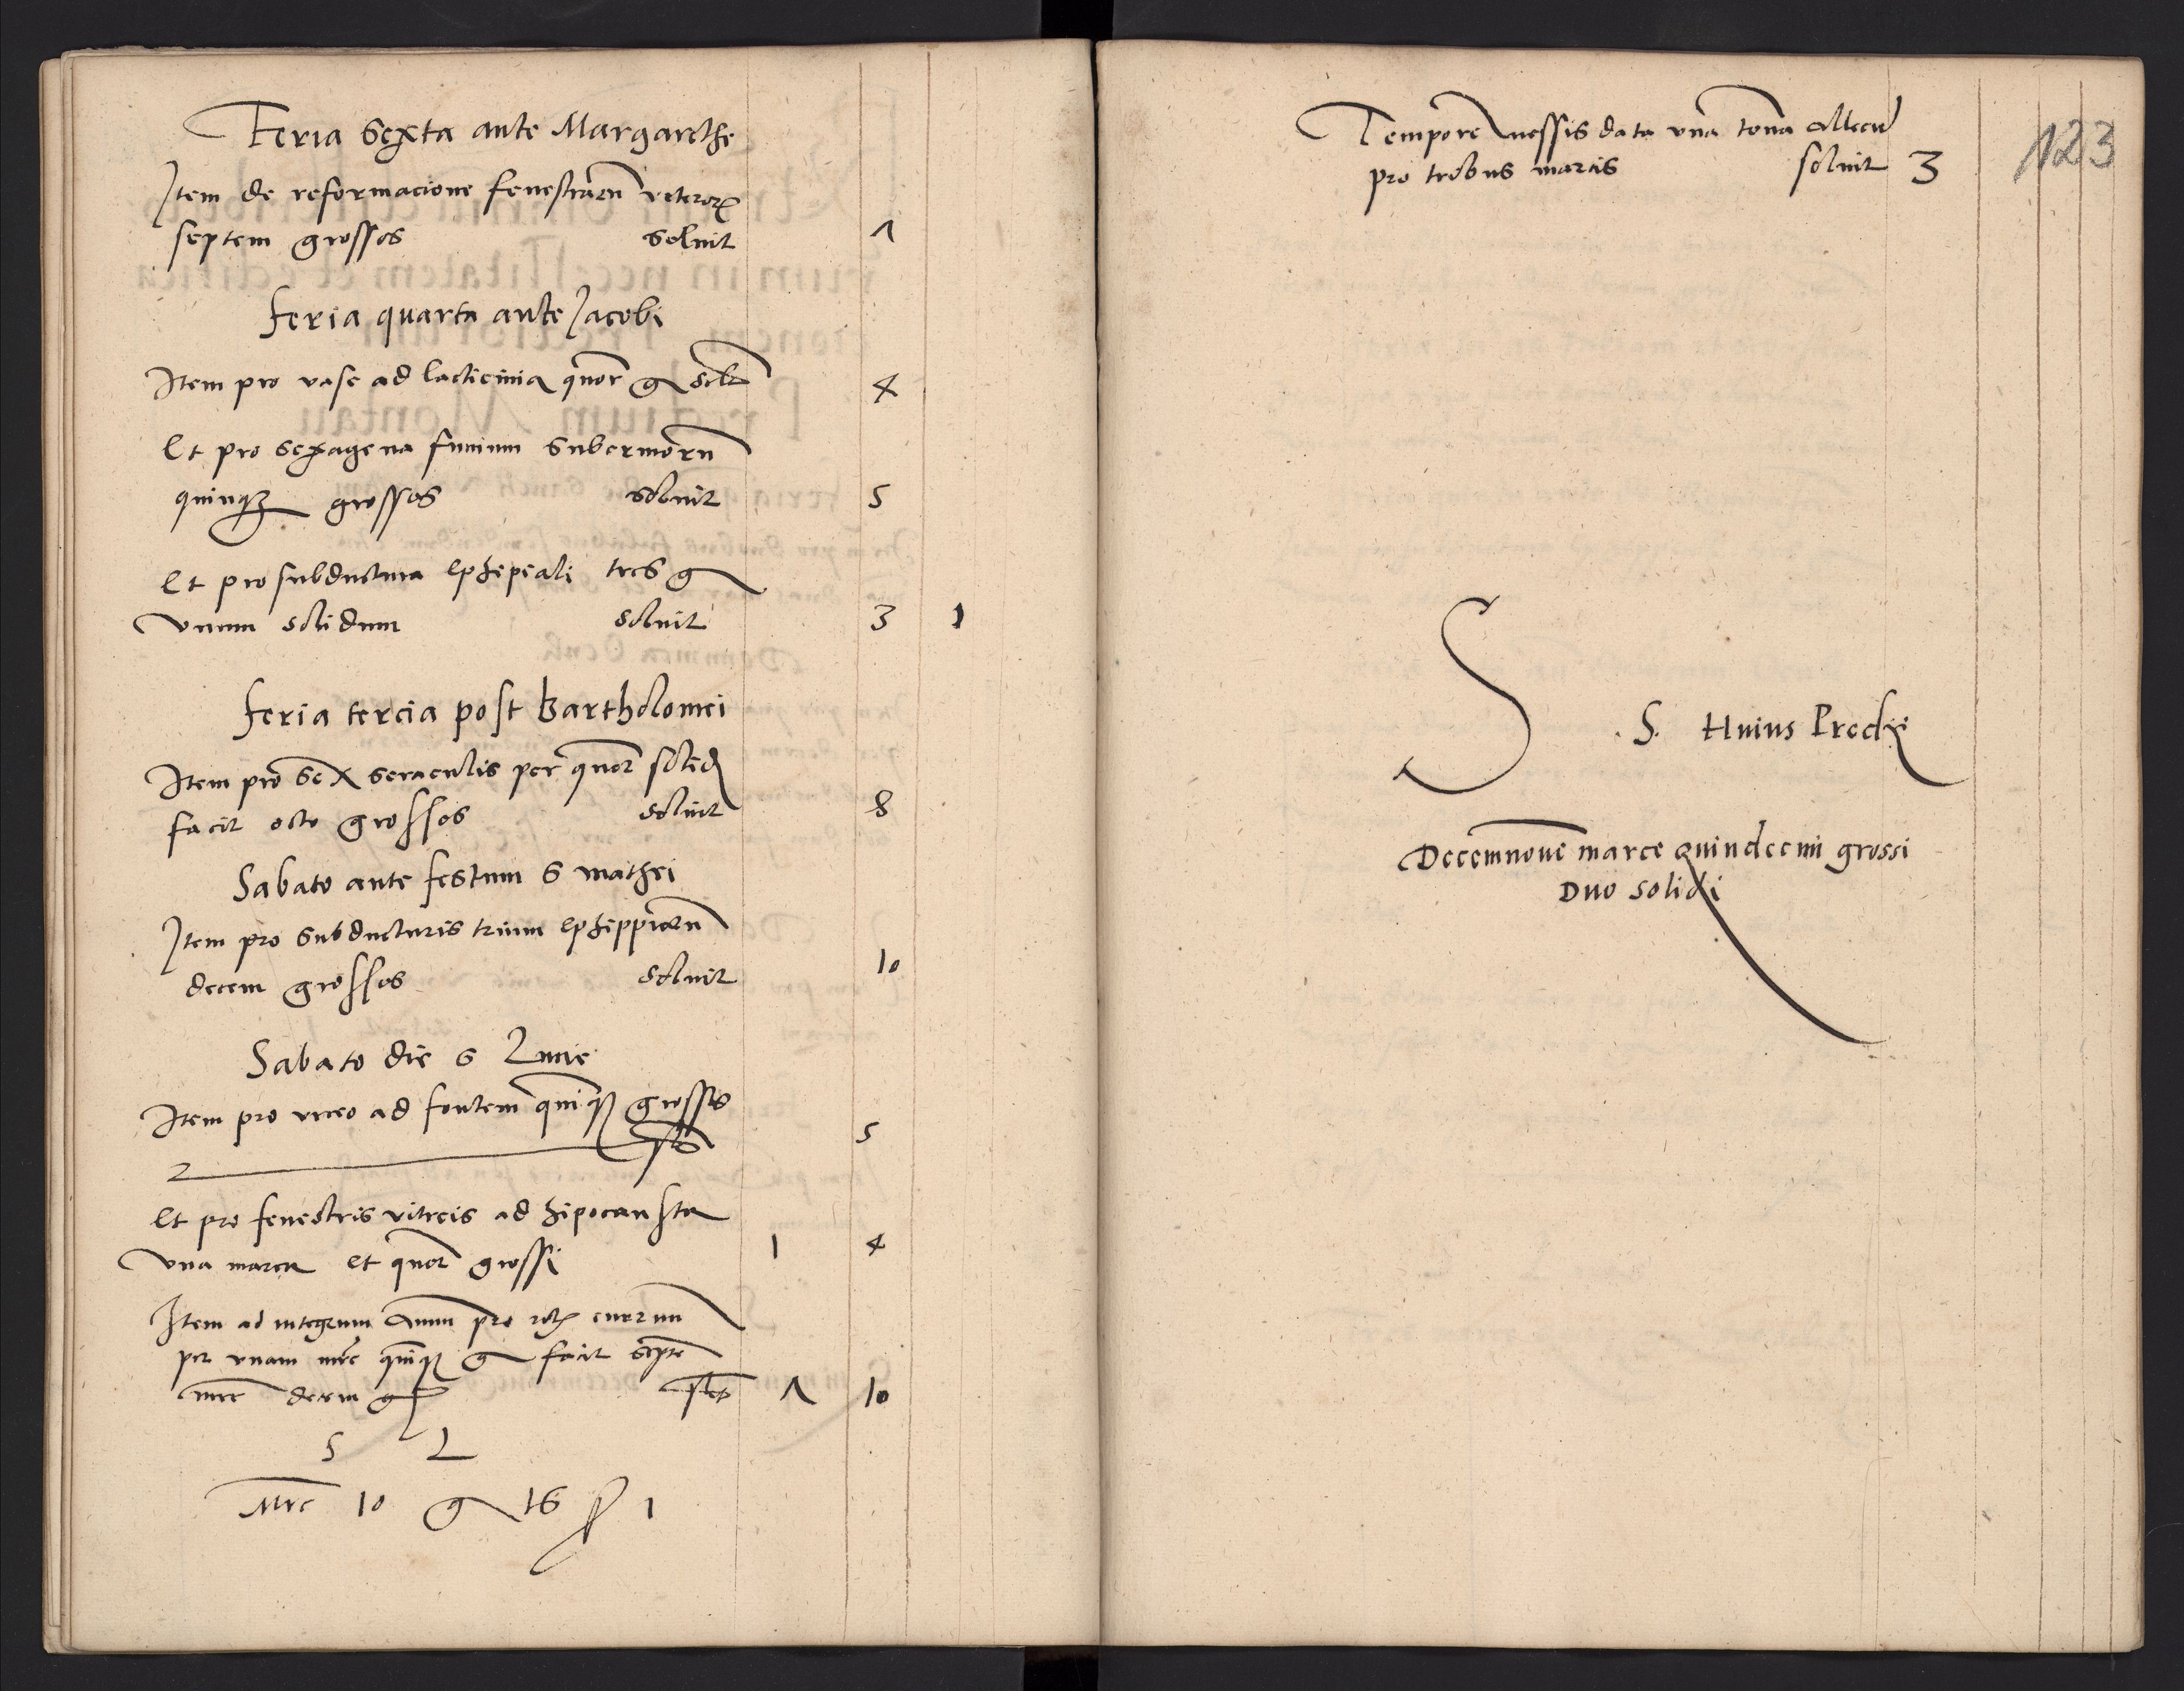 Feria Sexta ante Margarethe
Item de reformacione fenestrarū veterorꝫ
septem grossos soluit 7
feria quarta ante Jacobi
Item pro vase ad lacticinia quor g solt 4
Et pro sexagena funium
quinqꝫ grossos soluit 5
Et pro subductura ephipeali tres g
vnum solidum soluit 3 1
feria tercia post Bartholomei
Item pro sex seraculis per quor solid
facit octo grossos soluit 8
Sabato ante festum S mathei
Item pro subducturis trium ephippiorū
decem grossos soluit 10
Sabato die S Luce
Item pro vrceo ad fontem quiqꝫ grossos
5
Et pro fenestris vitreis ad hipocausta
vna marca et quor grossi 1 4
Item ad integrum Annu pro
per vnam mrc quiqꝫ g facit septe
mrc decem g 7 10
S L
Mrc 10 g 16 ſ 1
Tempore messis data vna tona allecu
pro tribus marcis soluit 3
123
S
S. Huius Predii
Decemnoue marce quindecim grossi
Duo solidi